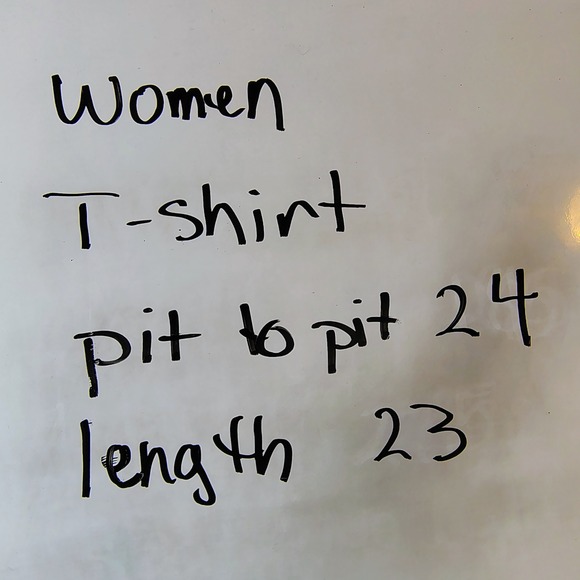 Women
T-shirt
pit to pit 24
length 23